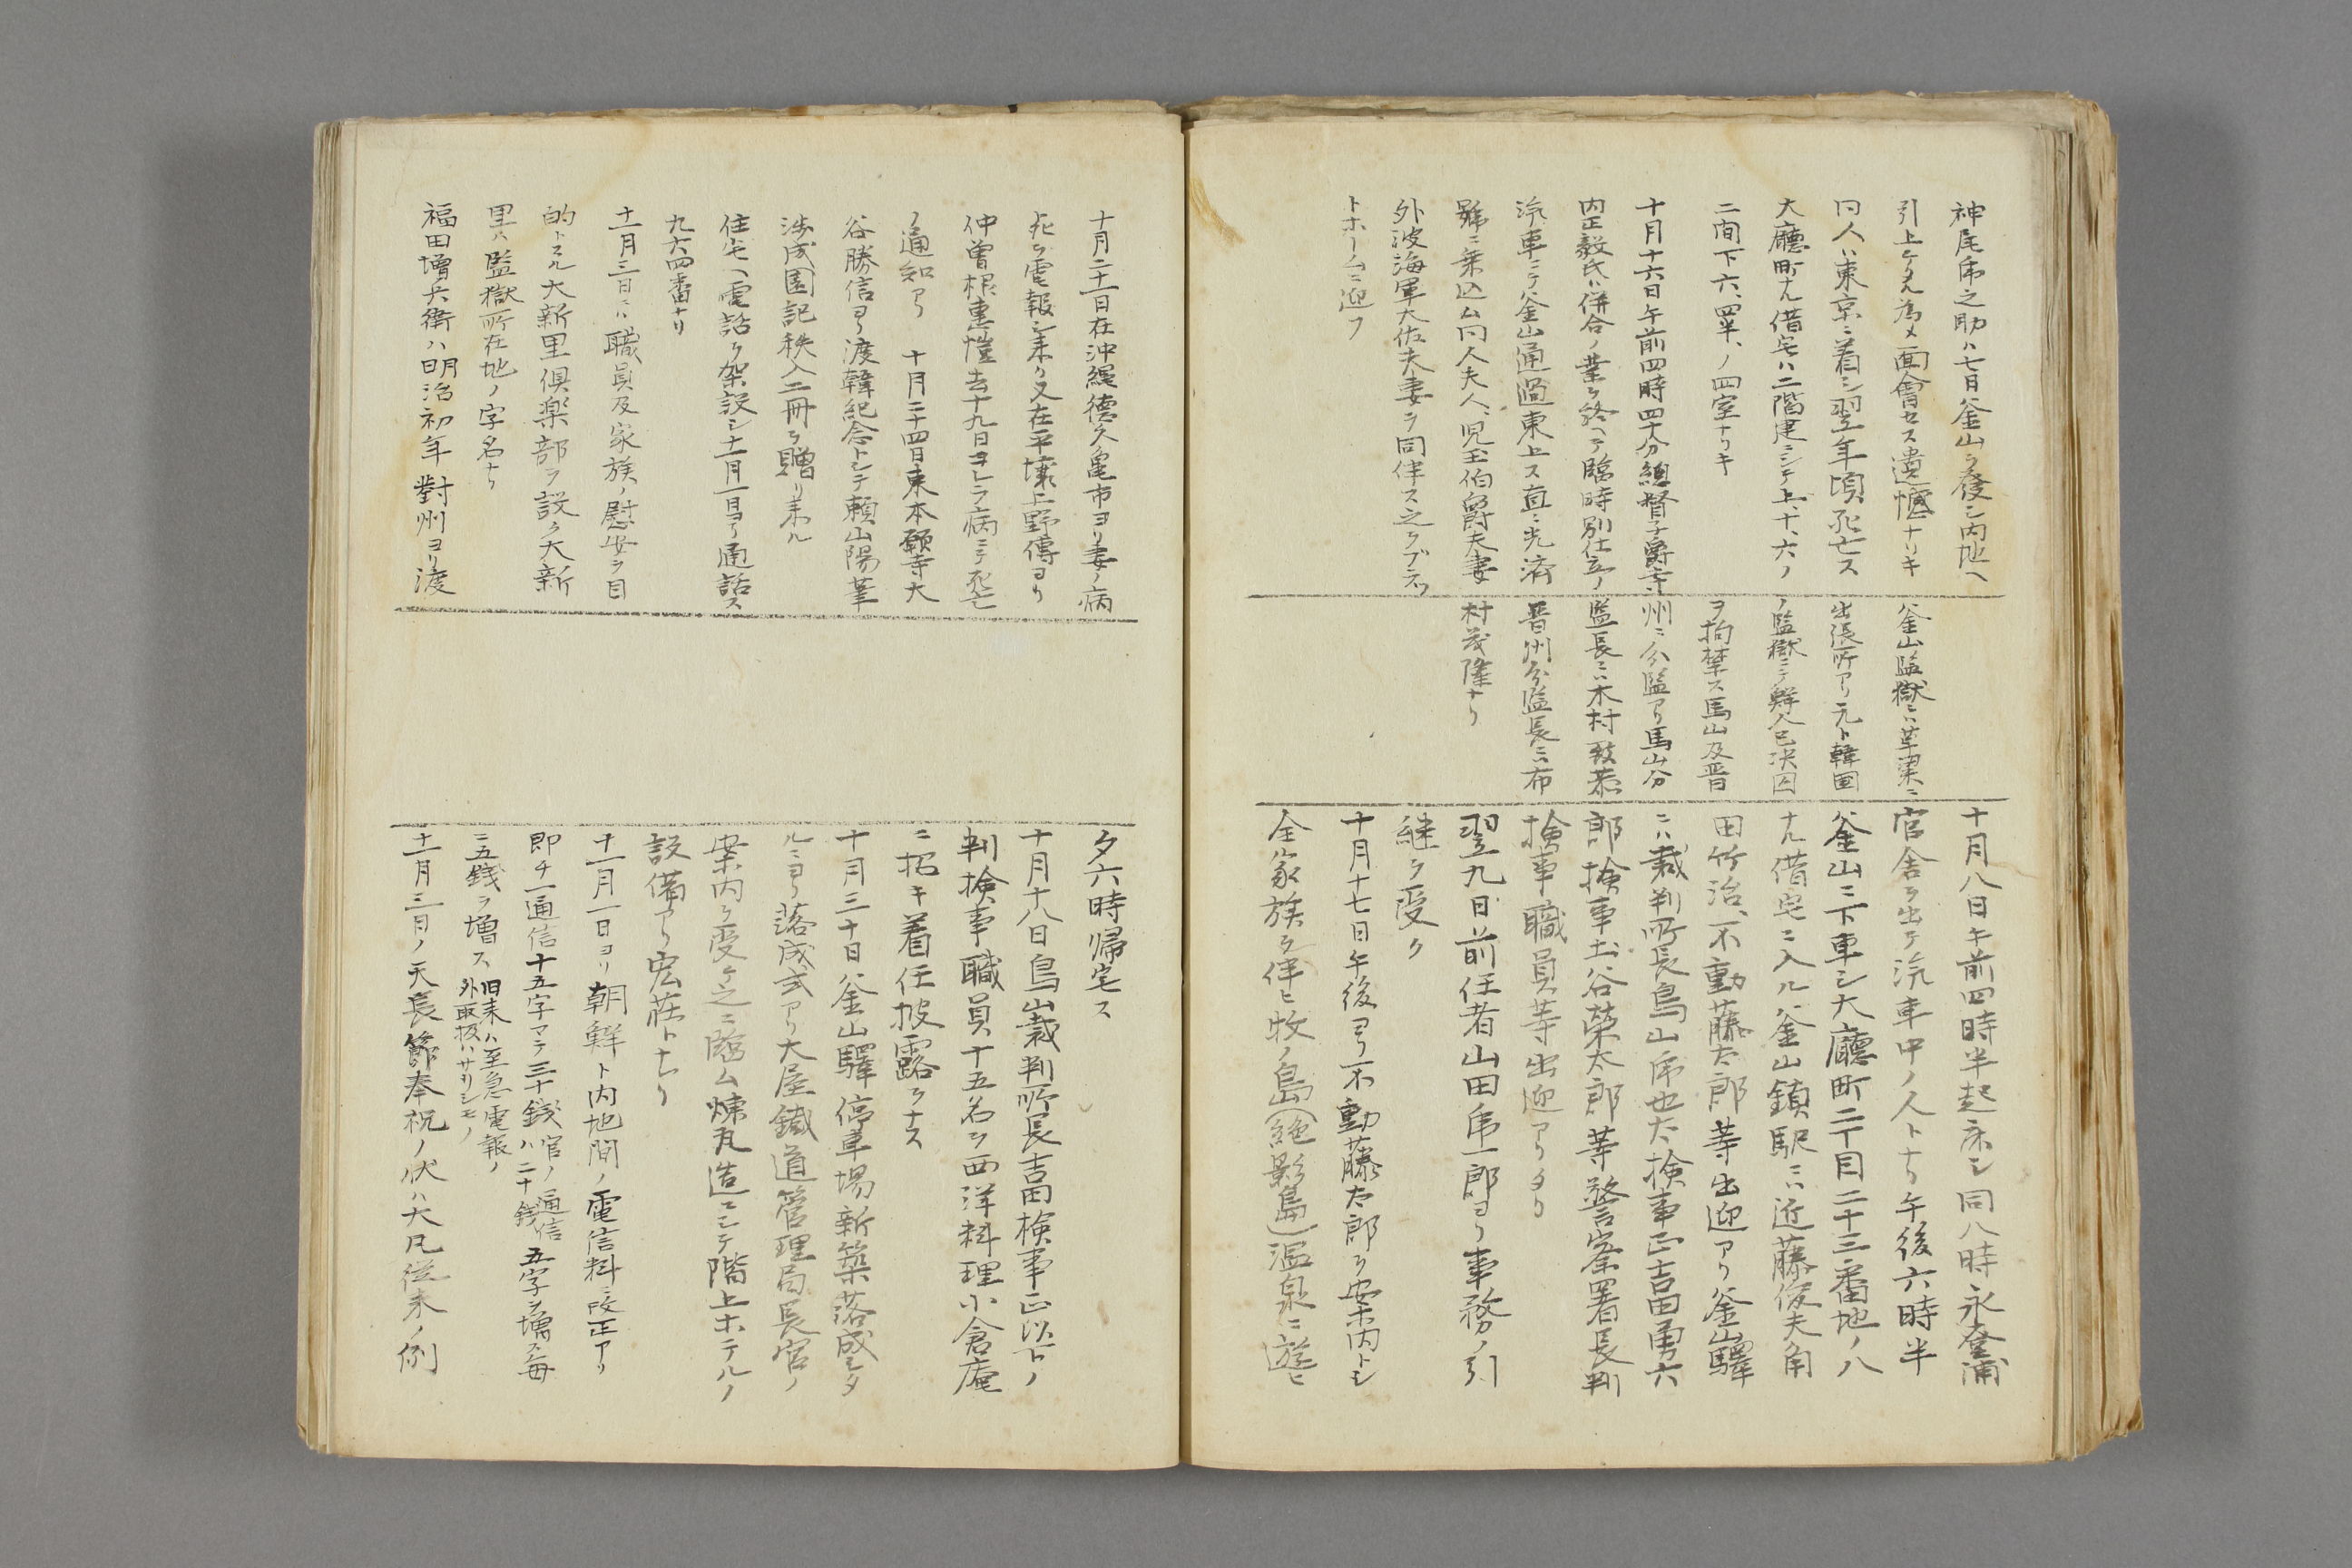 神尾虎之助ハ七日釜山ヲ發シ内地ヘ
引上ケタル為メ面會セス遺憾ナリキ
同人ハ東京ニ着シ翌年頃死亡ス
大廳町ナル借宅ハ二階建ニシテ上、十、六ノ
二間下六、四半、ノ四室ナリキ
十月十六日午前四時四十分總督子爵寺
内正毅氏ハ併合ノ業ヲ終ヘテ臨時別仕立ノ
汽車ニテ釜山通過東上ス直ニ光済
號ニ乗込ム同人夫人、児玉伯爵夫妻
外波海軍大佐夫妻ヲ同伴ス之ヲプラツ
トホームニ迎フ
釜山監獄ニハ草梁ニ
出張所アリ元ト韓国
ノ監獄ニテ鮮人已決囚
ヲ拘禁ス馬山及晋
州ニ分監アリ馬山分
監長ニハ木村
晋州分監長ニハ布
村茂隆ナリ
十月八日午前四時半起床シ同八時永登浦
官舎ヲ出テ汽車中ノ人トナリ午後六時半
釜山ニ下車シ大廳町二丁目二十三番地ノ八
ナル借宅ニ入ル、釜山鎮駅ニハ近藤俊夫角
田竹治、不動藤太郎等出迎アリ釜山驛
ニハ裁判所長鳥山虎也太検事正吉田勇六
郎検事土谷榮太郎等警察署長判
検事職員等出迎アリタリ
翌九日前任者山田虎一郎ヨリ事務ノ引
継ヲ受ク
十月十七日午後ヨリ不動藤太郎ヲ案内トシ
全家族ヲ伴ヒ牧ノ島(絶影島)温泉ニ遊ヒ
十月二十一日在沖縄德久亀市ヨリ妻ノ病
死ヲ電報シ来リ又在平壌上野傳ヨリ
仲曽根惠愷去十九日コレラ病ニテ死亡
ノ通知アリ 十月二十四日東本願寺大
谷勝信ヨリ渡韓紀念トシテ頼山陽筆
渉成園記秩入二冊ヲ贈リ来ル
住宅ヘ電話ヲ架設シ十一月一日ヨリ通話ス
九六四番ナリ
十一月三日ニハ職員及家族ノ慰安ヲ目
的トスル大新里倶楽部ヲ設ク大新
里ハ監獄所在地ノ字名ナリ
福田増兵衛ハ明治初年對州ヨリ渡
夕六時帰宅ス
十月十八日鳥山裁判所長吉田検事正以下ノ
判検事職員十五名ヲ西洋料理小倉庵
ニ招キ着任披露ヲナス
十月三十日釜山驛停車場新築落成シタ
ルニヨリ落成式アリ大屋鐵道管理局長官ノ
案内ヲ受ケ之ニ臨ム煉瓦造ニシテ階上ホテルノ
設備アリ宏荘トナリ
十一月一日ヨリ朝鮮ト内地間ノ電信料ニ改正アリ
即チ一通信十五字マテ三十銭官ノ通信ハ二十銭五字ヲ増ス毎
ニ五銭ヲ増ス旧来ハ至急電報ノ外取扱ハサリシモノ
十一月三日ノ天長節奉祝ノ状ハ大凡従来ノ例